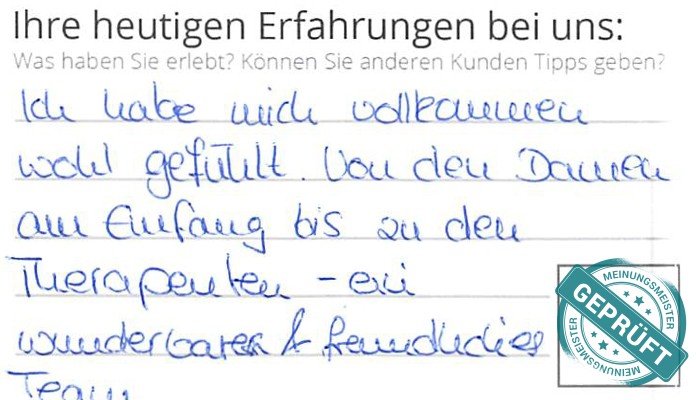 Ihre heutigen Erfahrungen bei uns:
Was haben Sie erlebt? Können Sie anderen Kunden Tipps geben?
Ich habe mich vollkommen
wohl gefühlt. Von den Damen
am Empfang bis zu den
Therapeuten - ein
wunderbares & freundliches
Team
MEINUNGSMEISTER
GEPRÜFT
MEINUNGSMEISTER